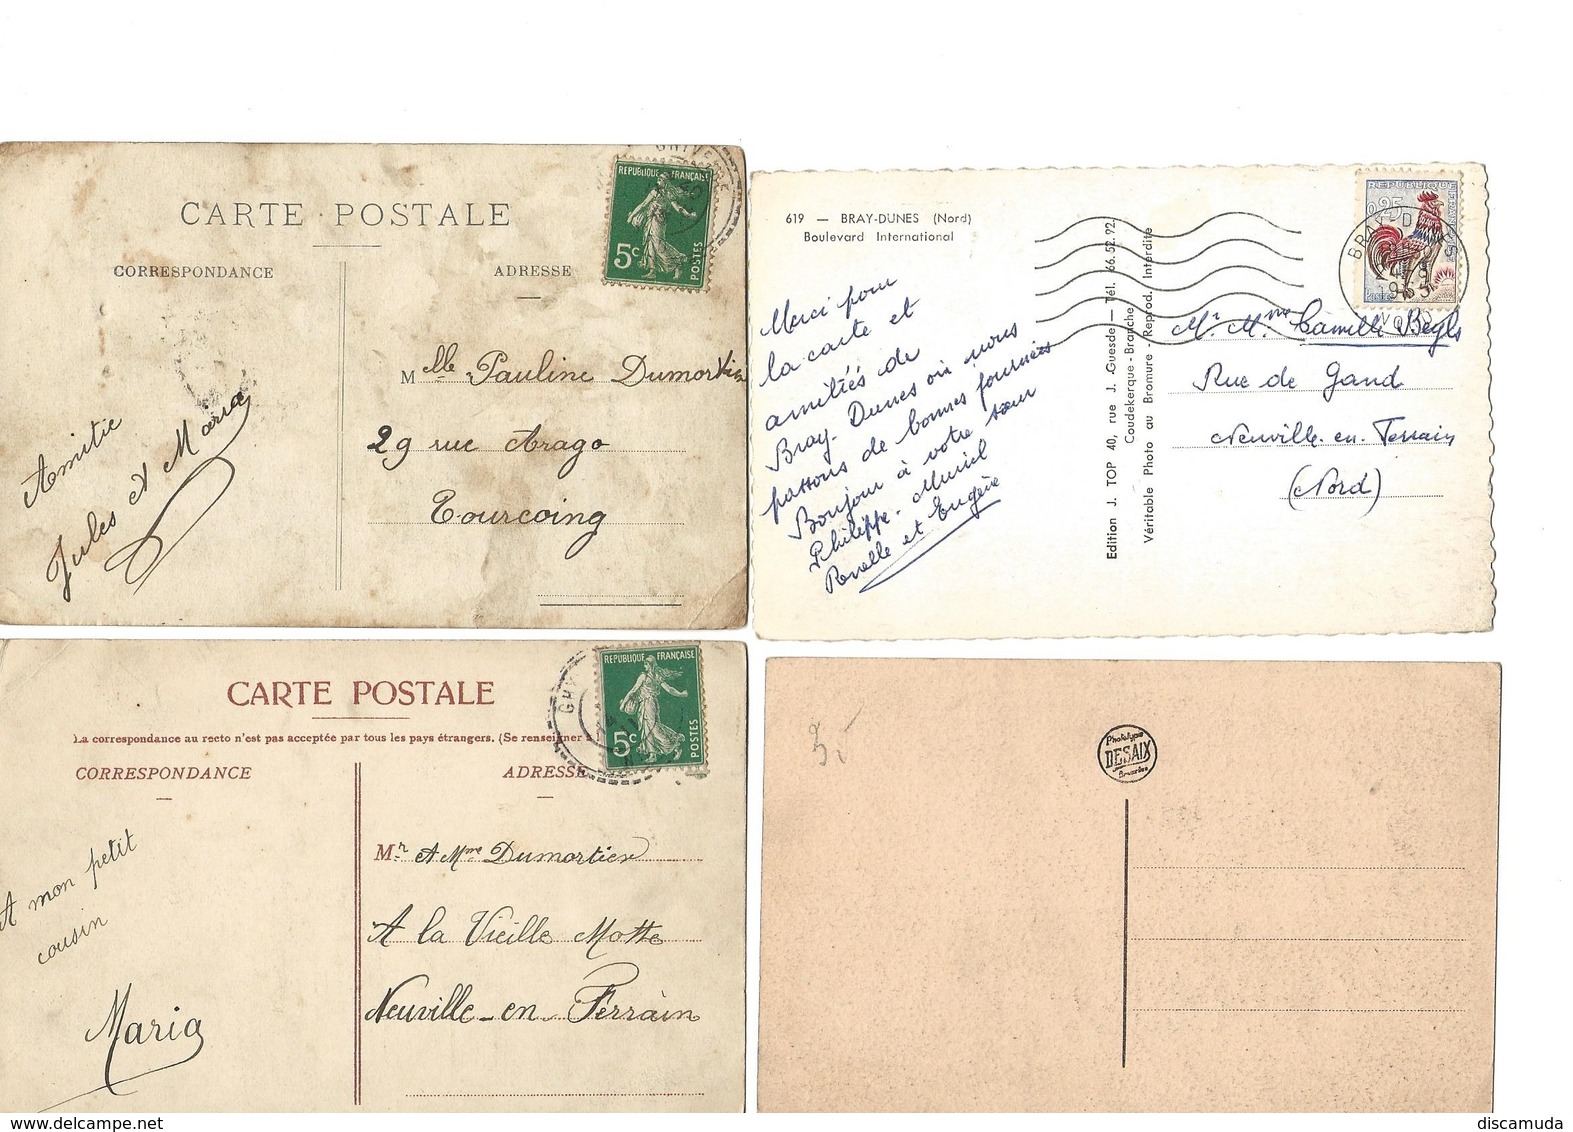 CARTE POSTALE
CORRESPONDANCE
ADRESSE
REPUBLIQUE FRANÇAISE
5c
POSTES
Amitié
Jules et Maria
Melle Pauline Dumortier
29 rue Arago
Tourcoing
619 — BRAY-DUNES (Nord)
Boulevard International
Merci pour
la carte et
amitiés de
Bray-Dunes où nous
passons de bonnes journées
Bonjour à votre sœur
Philippe - Muriel
et Eugène
Edition J. TOP 40, rue J. Guesde — Tél. 66.52.92.
Coudekerque-Branche
Véritable Photo au Bromure - Reprod. Interdite
REPUBLIQUE FRANÇAISE
0,25
BRAY DUNES
1965
NORD
Mr. Mme Camille Beyls
Rue de Gand
Neuville-en-Ferrain
(Nord)
CARTE POSTALE
La correspondance au recto n'est pas acceptée par tous les pays étrangers. (Se renseigner
CORRESPONDANCE
ADRESSE
REPUBLIQUE FRANÇAISE
5c
POSTES
A mon petit
cousin
Maria
Mr et Mme Dumortier
A la Vieille Motte
Neuville-en-Ferrain
Phototypie
DESAIX
Bruxelles
delcampe.net
discamuda